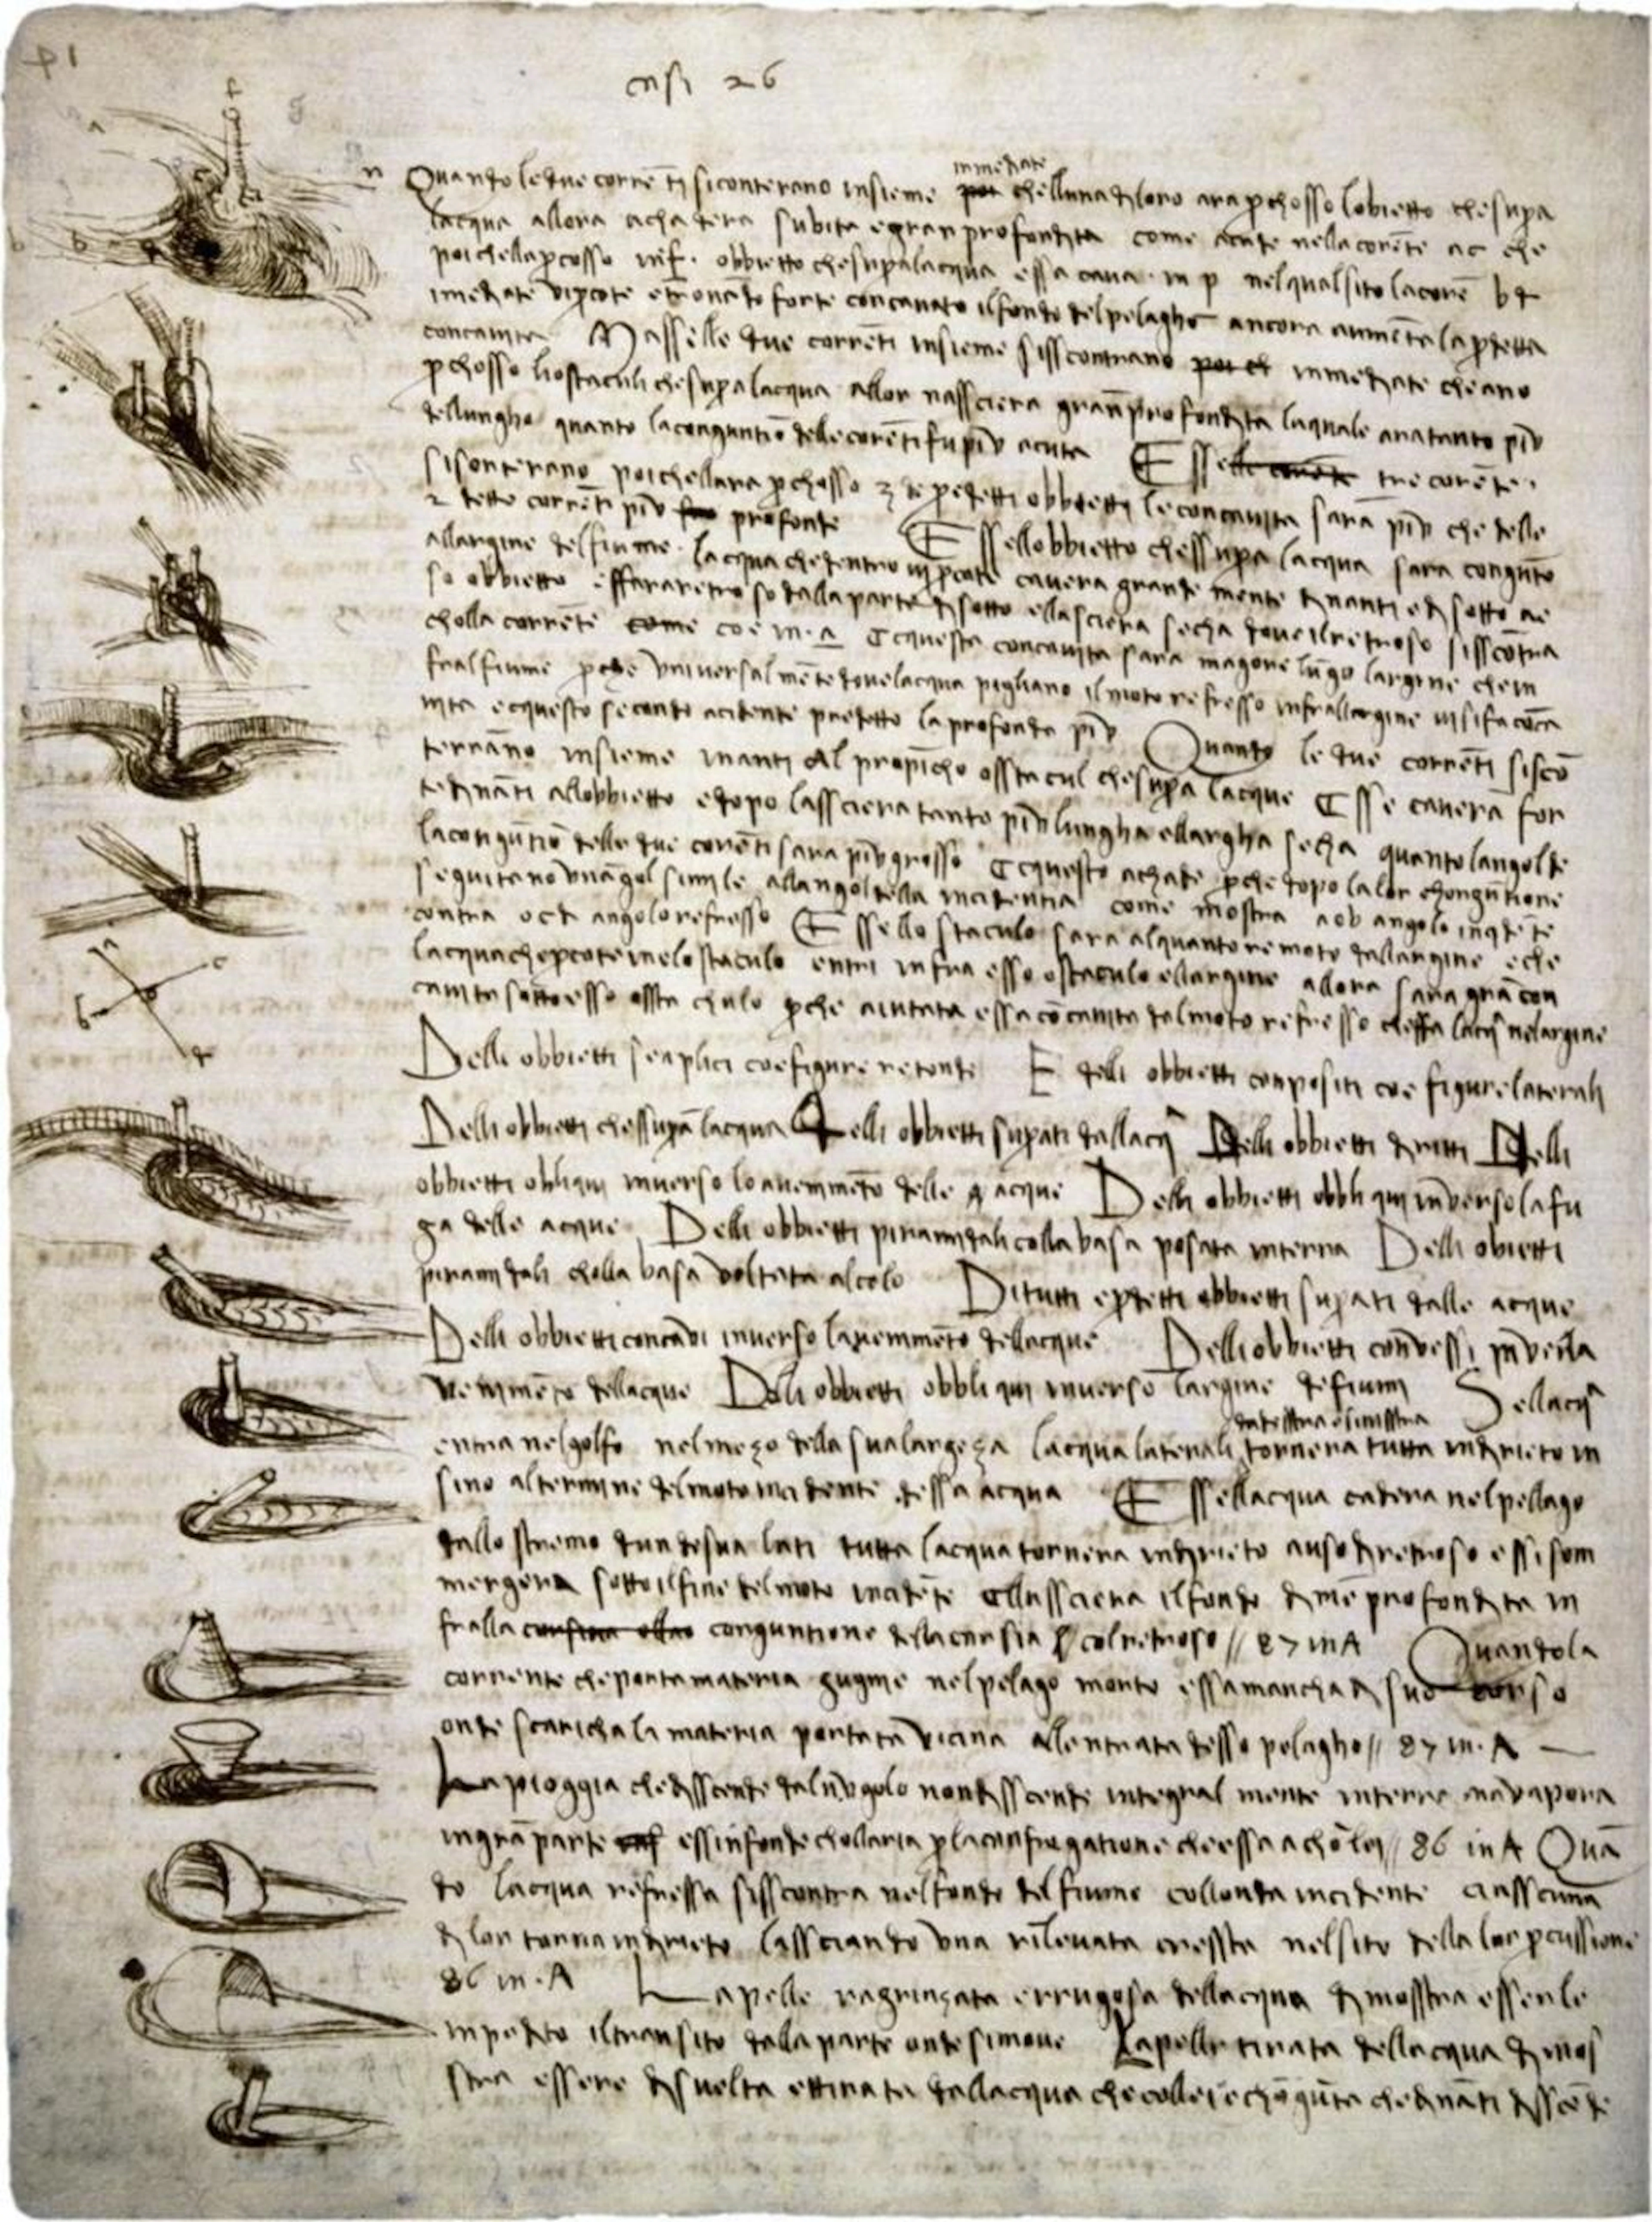 casi 26
immediate
Quando le due corrēti si sconterano insieme per chelluna di loro ara pchosso lobietto che supa
lacqua allora achadera subita e gran profondita come acade nella corēte ac che
poi chella pcosso inf. obbietto che supa lacqua essa cava in p nel qual sito la corē bd
imediate vi pcote e trovādo forte concavato il fondo del pelagho ancora aumēta la pdetta
concavita Masselle due corrēti insieme si sscontrano immediate che ano
pchosso li ostaculi che supa lacqua allor nassciera gran profondita la quale ara tanto piv
del lungho quanto la conguntiō delle corēti fu piv acuta Esse tre corēte
si sonterano poi chellara pchosso 3 de pdetti obbietti le concavita saran piv che delle
2 dette corrēti piv profonde Essellobbietto chessupa lacqua sara congūto
allargine del fiume lacqua che dentro vi pcote cavera grande mente dinanti e di sotto a
so obbietto effara retroso dalla parte di sotto ellasciera secha dove il retroso sisscōtra
cholla corrēte come coe in a Ecquesta concavita sara magore lūgo largine che in
fral fiume pche vniversal mēte dove lacqua pigliano il moto refresso infrallargine vi si fa cōca
vita ecquesto secondo acidente predetto la profonda piv Quando le due corrēti si scō
terrāno insieme inanti al propīcho osstacul che supa lacque Esse caverā for
te dināti allobbietto e dopo lassciera tanto piv lungha ellargha secha quanto langol de
la cōgūtiō delle due corrēti sara piv grosso Ecquesto achade pche dopo la lor chongūtione
seguitano vnāgol simile allangol della incidentia come mostra aob angolo incidēte
contra ocd angolo refresso Essello staculo sara alquanto remoto dallargine e che
lacqua che pcote in elo staculo entri infra esso ostaculo ellargine allora sara grā con
cavita sotto esso ossta chulo pche aiutata essa cōcavita dal moto refresso cheffa lacq nelargine
Delli obbietti senplici coe figure retonde E delli obbietti conpositi coe figure laterali
Delli obbietti chessupā lacqua Delli obbietti supati dallacq Delli obbietti diritti Delli
obbietti obliqui inverso lo avenimēto delle acque Delli obbietti obbliqui inverso la fu
ga delle acque Delli obbietti piramidali colla basa posata in terra Delli obietti
piramidali cholla basa voltata al celo Di tutti e pdetti obbietti supati dalle acque
Delli obbietti concavi inverso lavenimēto dellacque Delli obbietti convessi inver la
venimēto dellacque Delli obbietti obbliqui inverso largine de fiumi Sellacq
da desstra e sinisstra
entra nel golfo nel mezo della sua largeza lacqua laterali tornera tutta indirieto in
sino al termine del moto incidente dessa acqua Essellacqua cadera nel pellago
dallo stremo dun de sua lati tutta lacqua tornera indirieto a uso di retroso e ssi som
mergera sotto il fine del moto incidēte ellassciera il fondo di mē profondita in
fralla conguntione della corsia col retroso // 87 in A Quando la
corrente che porta materia gugne nel pelago morto essa mancha di suo corso
onde scaricha la materia portata vicina allentrata desso pelagho // 87 in. A
La pioggia che disscende dal nvgolo non disscende integral mente in terra ma vapora
in grā parte essinfonde chollaria p la confregatione che essa a chō lei // 86 in A Quā
do lacqua refressa sisscontra nel fondo del fiume collonda incidente ciasscuna
di lor torna indirieto lassciando vna rilevata cressta nel sito della lor pcussione
86 in. A La pelle ragrinzata e rrugosa dellacqua dimosstra esserle
inpedito il transito dalla parte onde si move La pelle tirata dellacqua dimos
stra essere disvelta ettirata dallacqua che colle i e chōgūta che dināti disscēde